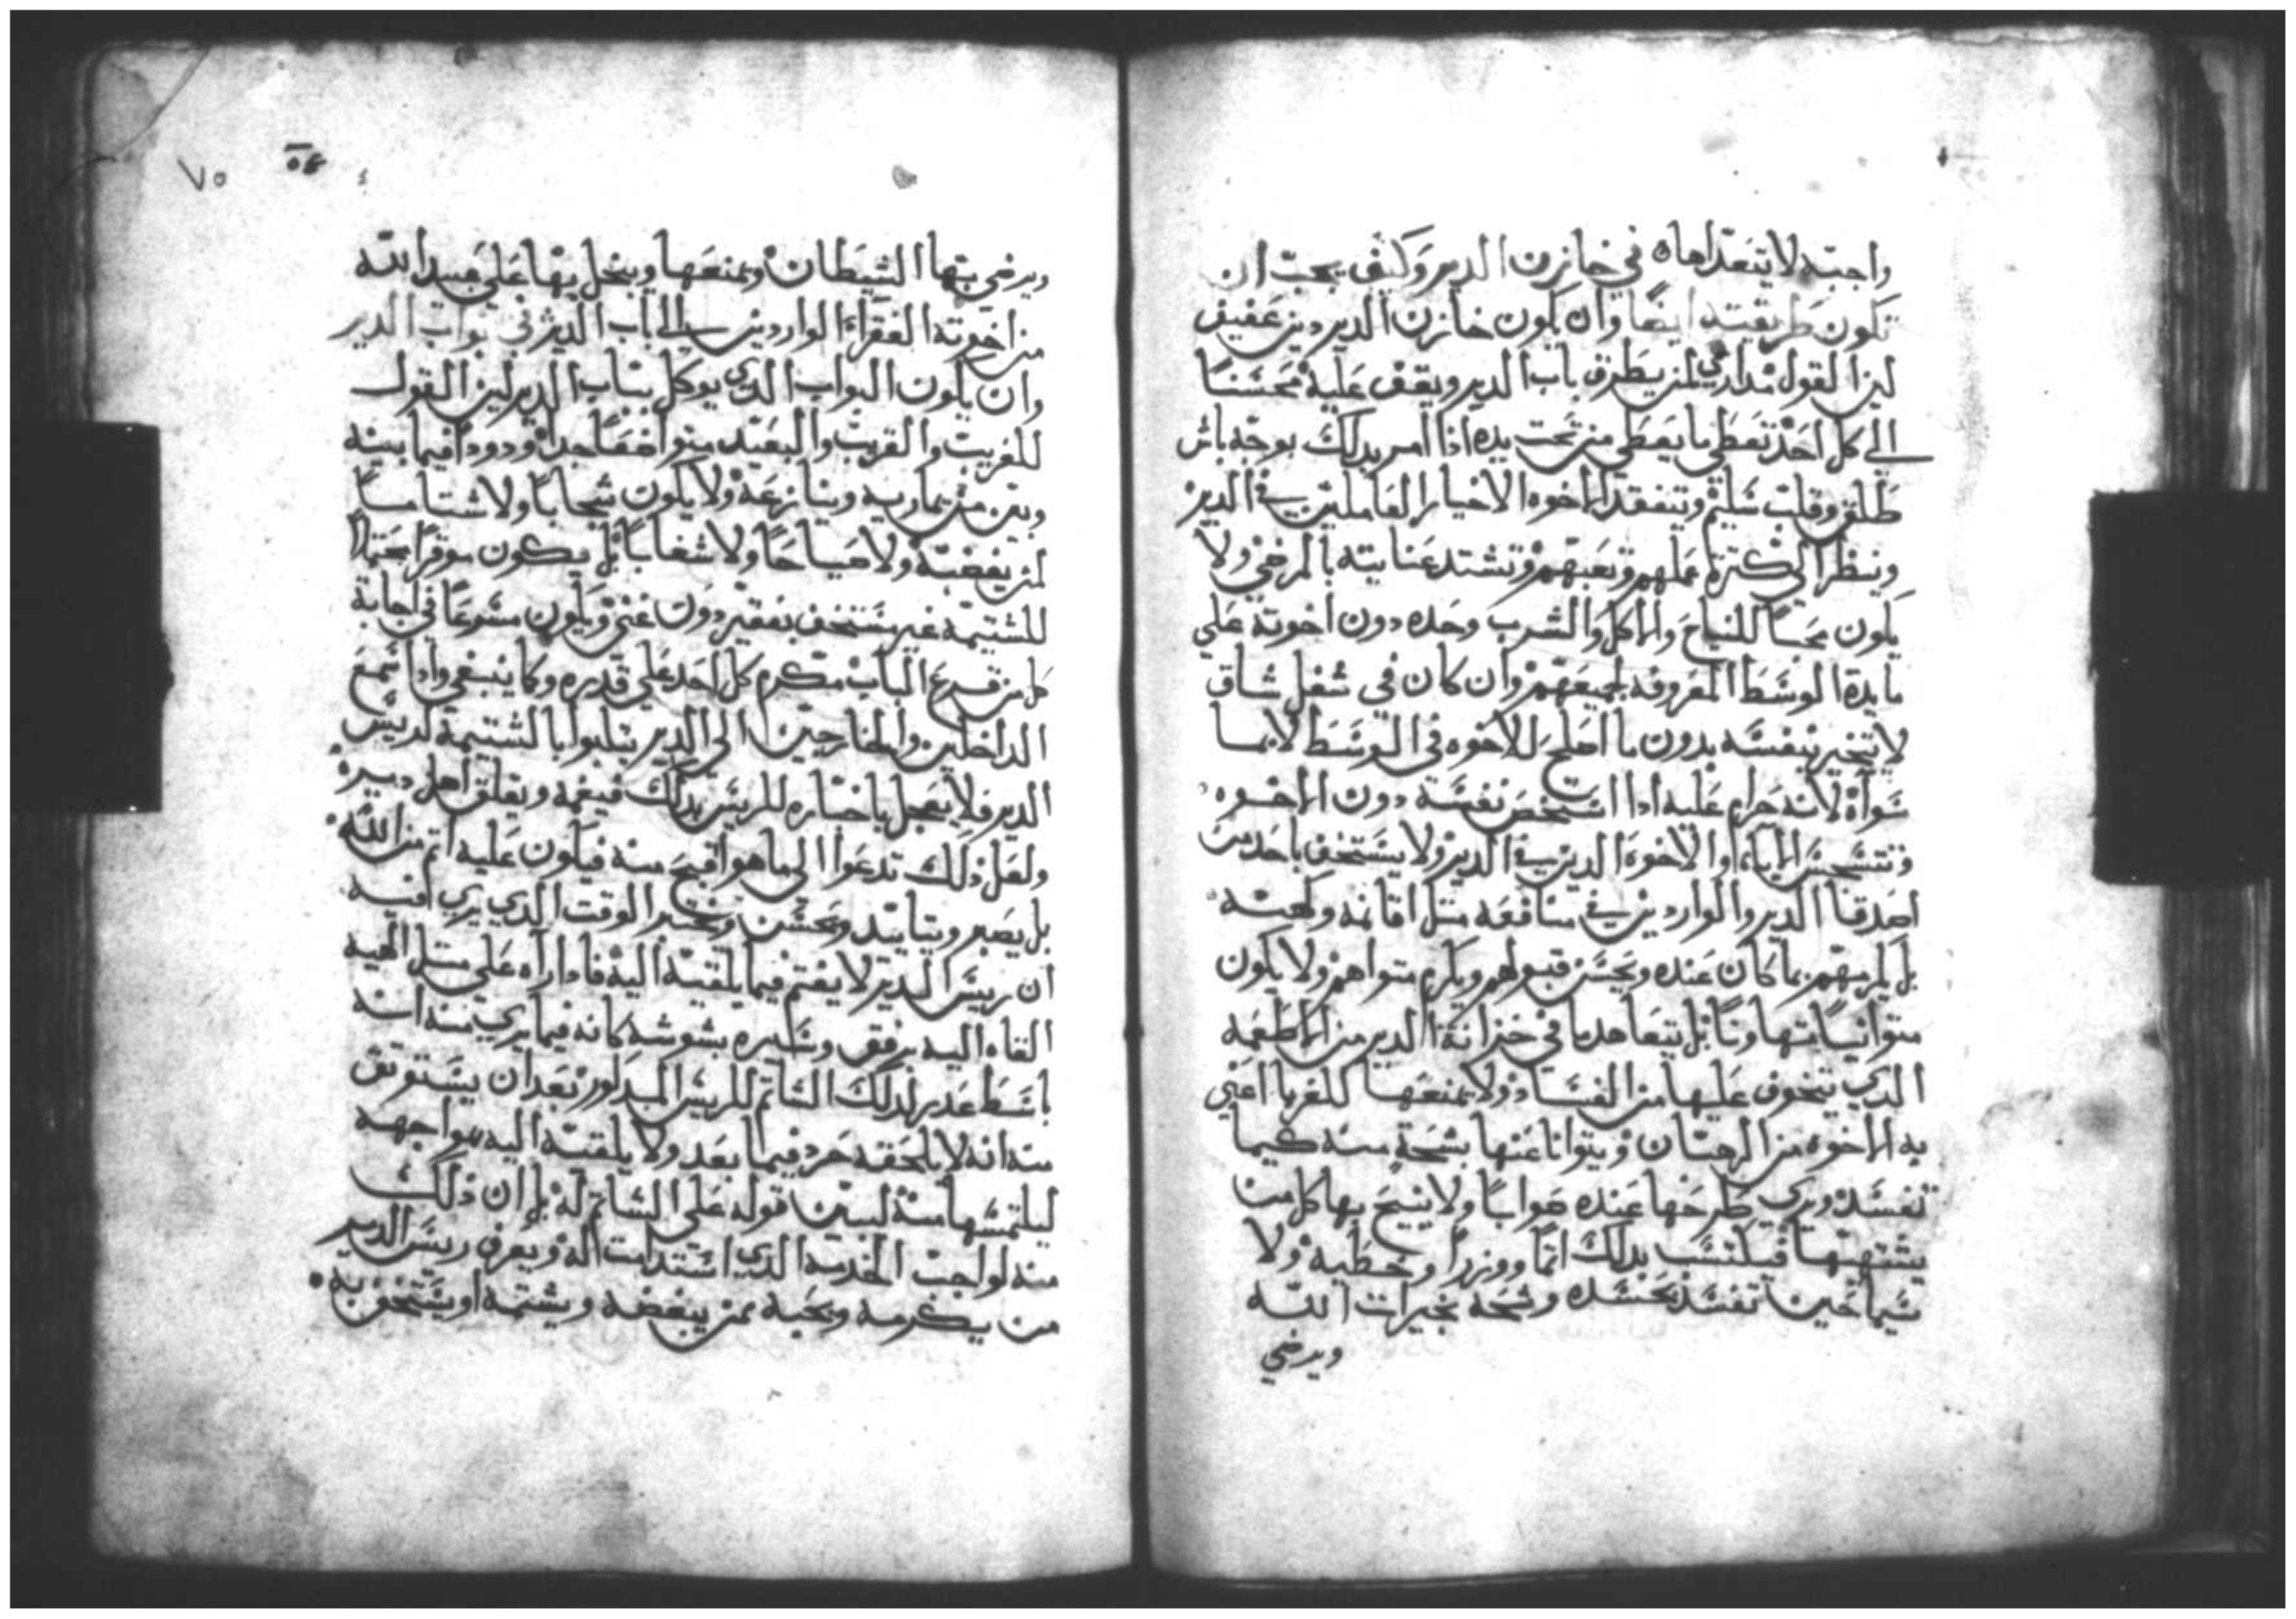 واجبته لا يتعداها في خازن الدير وكيف يجب ان
تكون طريقته ايضا وان يكون خازن الدير دين عفيف
لين القول مداري لمن يطرق باب الدير ويقف عليه محسنا
الى كل احد تعطي ما يعطي من تحت يده اذا امر بدلك بوجه باش
طلق وقلب سليم ويتفقد الاخوه الاخيار العاملين في الدير
وينظر الى كترة عملهم وتعبهم وتشتد عنايته بالمرضي ولا
يكون محبا للنياح والاكل والشرب وحده دون اخوته على
مايدة الوسط المعروفه لجميعهم وان كان في شغل شاق
لا يتخير لنفسه بدون ما اصلح للاخوه في الوسط لا بما
سواه لانه حرام عليه ادا استخص نفسه دون الاخوه
الاباء او الاخوه الدين في الدير ولا يستخف باحد من
اصدقا الدير والواردين في منافعه متل اقامه
بل يكرمهم بما كان عنده ويحسن قبولهم ويكرم متواهم ولا يكون
متوانيا متهاونا بل يتعاهد ما في خزانة الدير من الاطعمه
الدي يتخوف عليها من الفساد ولا يمنعها للغربا اعني
به الاخوه من الرهبان ويتوانا عنها بشحة منه كيما
تفسد ويري طرحها عنده صوابا ولا ينيح بها كل من
يشتهيها فيكتسب بدلك اتما ووزرا وخطيه ولا
سيما حين تفسد بحسده وشحه بخيرات الله
ويرضي
ويرضي بتها الشيطان ويمنعها ويبخل بها على عبيد الله
من اخوته الفقراء الواردين الى باب الدير في بواب الدير
وان يكون البواب الدي يوكل بباب الدير لين القول
للغريب والقريب والبعيد متواضعا جدا ودودا فيما بينه
وبين من يماريه وينازعه ولا يكون سبابا ولا شتاما
لمن يغضبه ولا صياحا ولا شغابا بل يكون موقرا محتملا
للشتيمة غير مستخف بفقير دون غني ويكون مسرعا في اجابة
كل من قرع الباب مكرم كل احد على قدره وكما ينبغي وادا سمع
الداخلين والخارجين الى الدير يتلبوا بالشتيمة لريس
الدير فلا يعجل باخباره للريس بدلك فيغمه ويقلق اهل ديره
ولعل ذلك تدعوا الى ما هو اقبح منه فيكون عليه اتم من الله
بل يصبر ويتايد ويحسن ويختبر الوقت الدي يري افيه
ان ريس الدير لا يغتم فيما يلقيه اليه فادا راه على متل الهيه
القاه اليه برفق وشكيره بشوشه كانه فيما يري منه انه
باسط عدر لدلك الشاتم للريس المدكور بعد ان يستوتق
منه انه لا يلحقه حرد فيما بعد ولا يلقيه اليه مواجهه
ليلتمسها منه ليبين قوله على الشاتم له بل ان ذلك
منه لواجب الخدمه الدي استدامت اله ويعرف ريس الدير
من يكرمه ويحبه ممن يبغضه ويشتمه او يستخف به